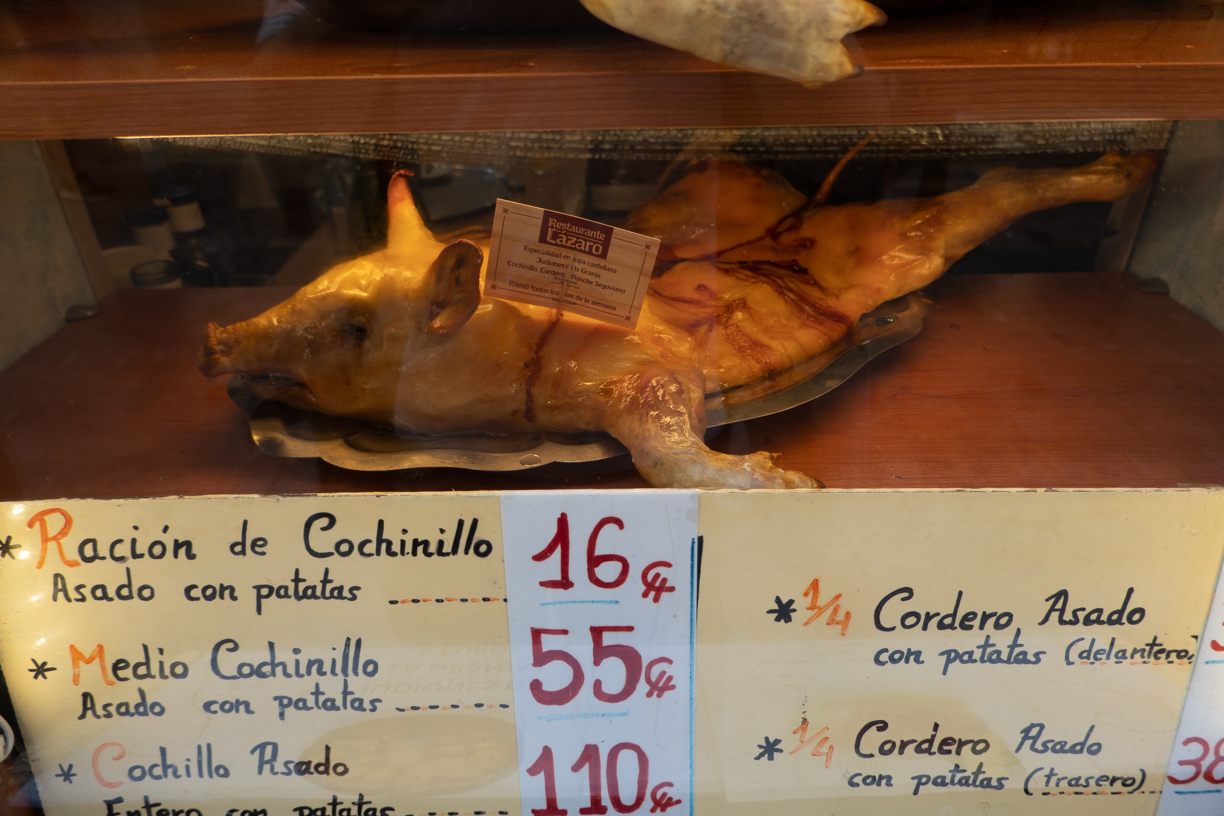 Restaurante
Lázaro
Especialidad en sopa castellana
Judiones la Granja
Cochinillo, Cordero, Ponche Segoviano
Menú todos los de la semana
* Ración de Cochinillo
Asado con patatas ........ 16 €
* Medio Cochinillo
Asado con patatas ........ 55 €
* Cochillo Asado
Entero con patatas ........ 110 €
* 1/4 Cordero Asado
con patatas (delantero)
* 1/4 Cordero Asado
con patatas (trasero) ........ 38